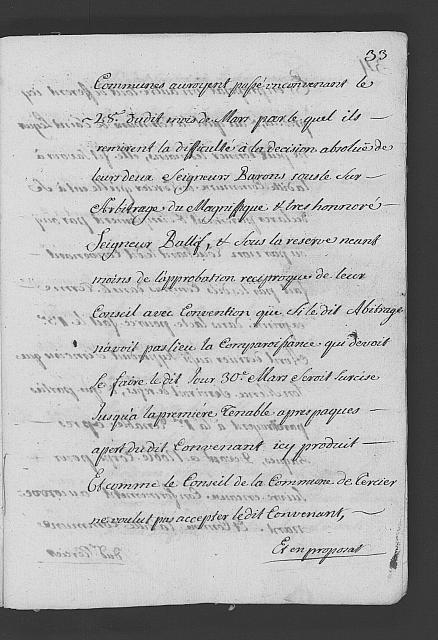 33
Communes auroyent passé un convenant le
28e. dudit mois de Mars par le quel ils —
remirent la difficulté à la decision absoluë de
leurs deux Seigneurs Barons sous le Sur —
Arbitrage du Magnifique & tres honnoré —
Seigneur Ballif, & sous la reserve neant
moins de l'approbation reciproque de leur
Conseil avec Convention que si le dit Abitrage
n'avoit pas lieu la Comparoissance qui devoit
se faire le dit Jour 30e Mars seroit surcise
Jusqu'a la premiére Tenable apres paques —
apert du dit Convenant icy produit —
Et comme le Conseil de la Commune de Cercier
ne voulut pas accepter le dit Convenant, —
Et en proposat